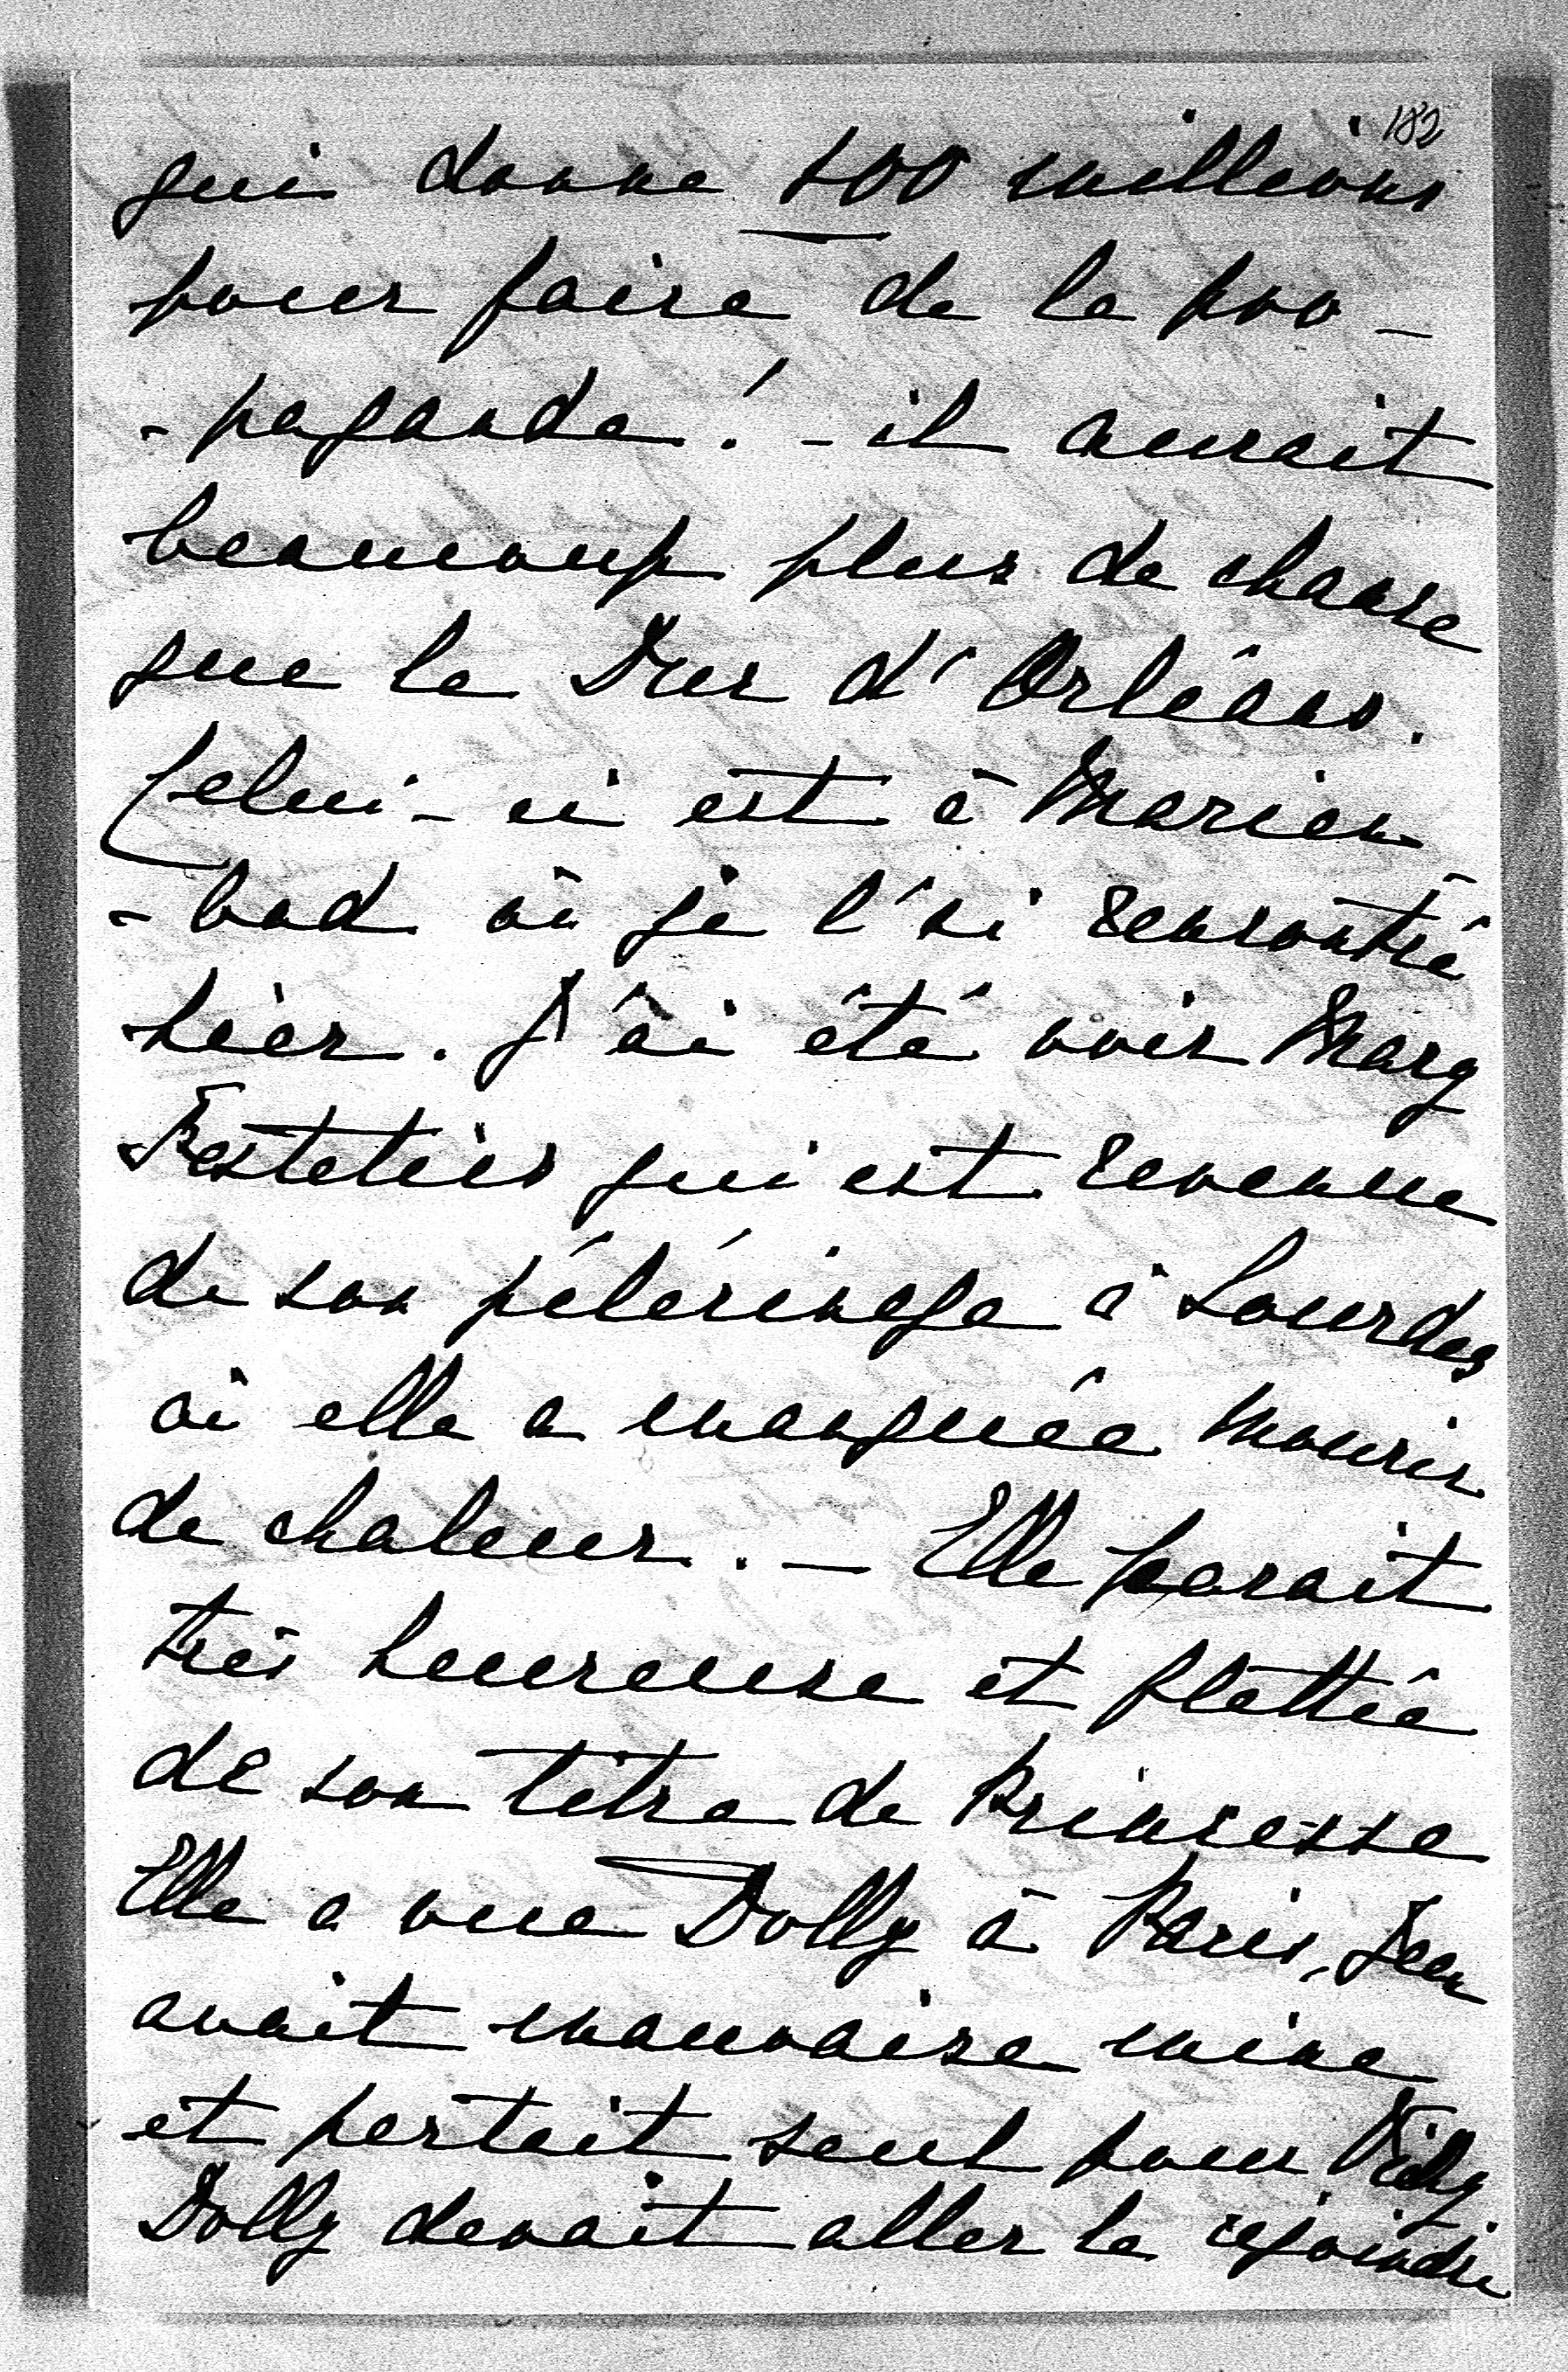 182
qui donne 100 millions
pour faire de la pro-
-pagande! - il aurait
beaucoup plus de chance
que le Duc d'Orléans.
Celui-ci est à Marien-
-bad où je l'ai rencontré
hier. J'ai été voir Mary
Festetics qui est revenue
de son pélérinage à Lourdes
où elle a manquée mourir
de chaleur. - Elle parait
très heureuse et flattée
de son titre de Princesse
Elle a vue Dolly à Paris, Jean
avait mauvaise mine
et partait seul pour Vichy
Dolly devait aller le rejoindre